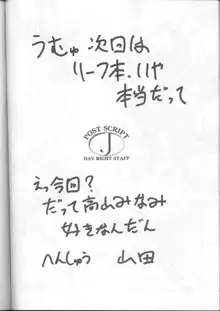 うむゅ次回は
リーフ本、いや
本当だって
POST SCRIPT
J
DAY RIGHT STAFF
えっ今回？
だって高山みなみ
好きなんだん
へんしゅう 山田